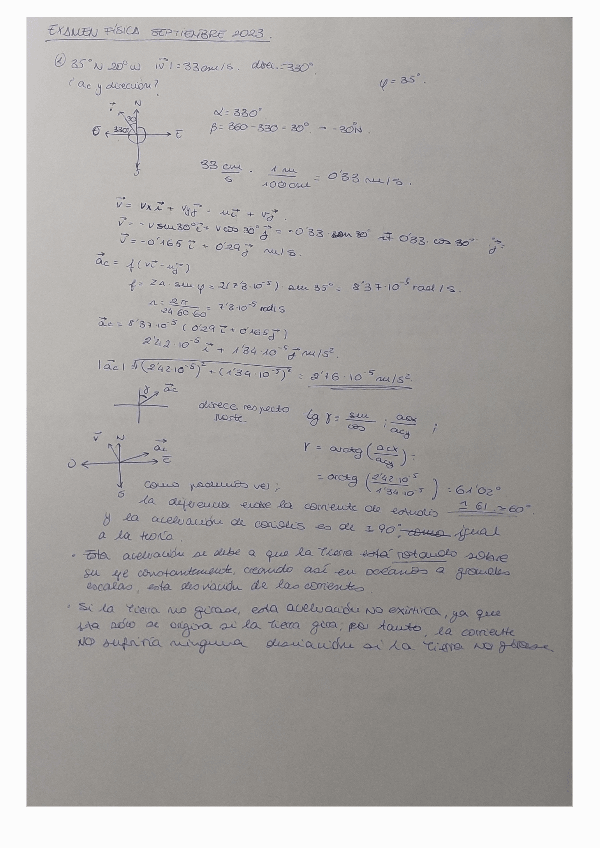 EXAMEN FÍSICA SEPTIEMBRE 2023.
35°N 20°W |v| = 33cm/s. direc. = 330°.
¿ac y dirección?
φ = 35°.
N
30
330°
O
E
S
α = 330°
β = 360 - 330 = 30° → -30°N.
33 cm/s · 1 m/100 cm = 0'33 m/s.
v = vx i + vy j = u i + v j.
v = -v sen30° i + v cos 30° j = -0'33 · sen 30° i + 0'33 · cos 30° j =
v = -0'165 i + 0'29 j m/s.
ac = f (v i - u j)
f = 2Ω · sen φ = 2(7'3·10⁻⁵) sen 35° = 8'37·10⁻⁵ rad/s.
Ω = 2π / 24·60·60 = 7'3·10⁻⁵ rad/s
ac = 8'37·10⁻⁵ (0'29 i + 0'165 j)
2'42·10⁻⁵ i + 1'34·10⁻⁵ j m/s².
|ac| = √(2'42·10⁻⁵)² + (1'34·10⁻⁵)² = 2'76·10⁻⁵ m/s²
γ ac
direcc respecto
norte.
tg γ = sen/cos ; acx/acy ;
γ = arctg (acx/acy) =
= arctg (2'42·10⁻⁵ / 1'34·10⁻⁵) = 61'02°
1 61 ≃ 60°
v N ac
O E
S
como podemos ver;
la diferencia entre la corriente de estudio
y la aceleración de coriolis es de ± 90°, como igual
a la teoría.
· Esta aceleración se debe a que la Tierra está rotando sobre
su eje constantemente, creando así en océanos a grandes
escalas, esta desviación de las corrientes.
· Si la tierra no girase, esta aceleración no existiría, ya que
ésta sólo se origina si la tierra gira; por tanto, la corriente
no sufriría ninguna desviación si la tierra no girase.